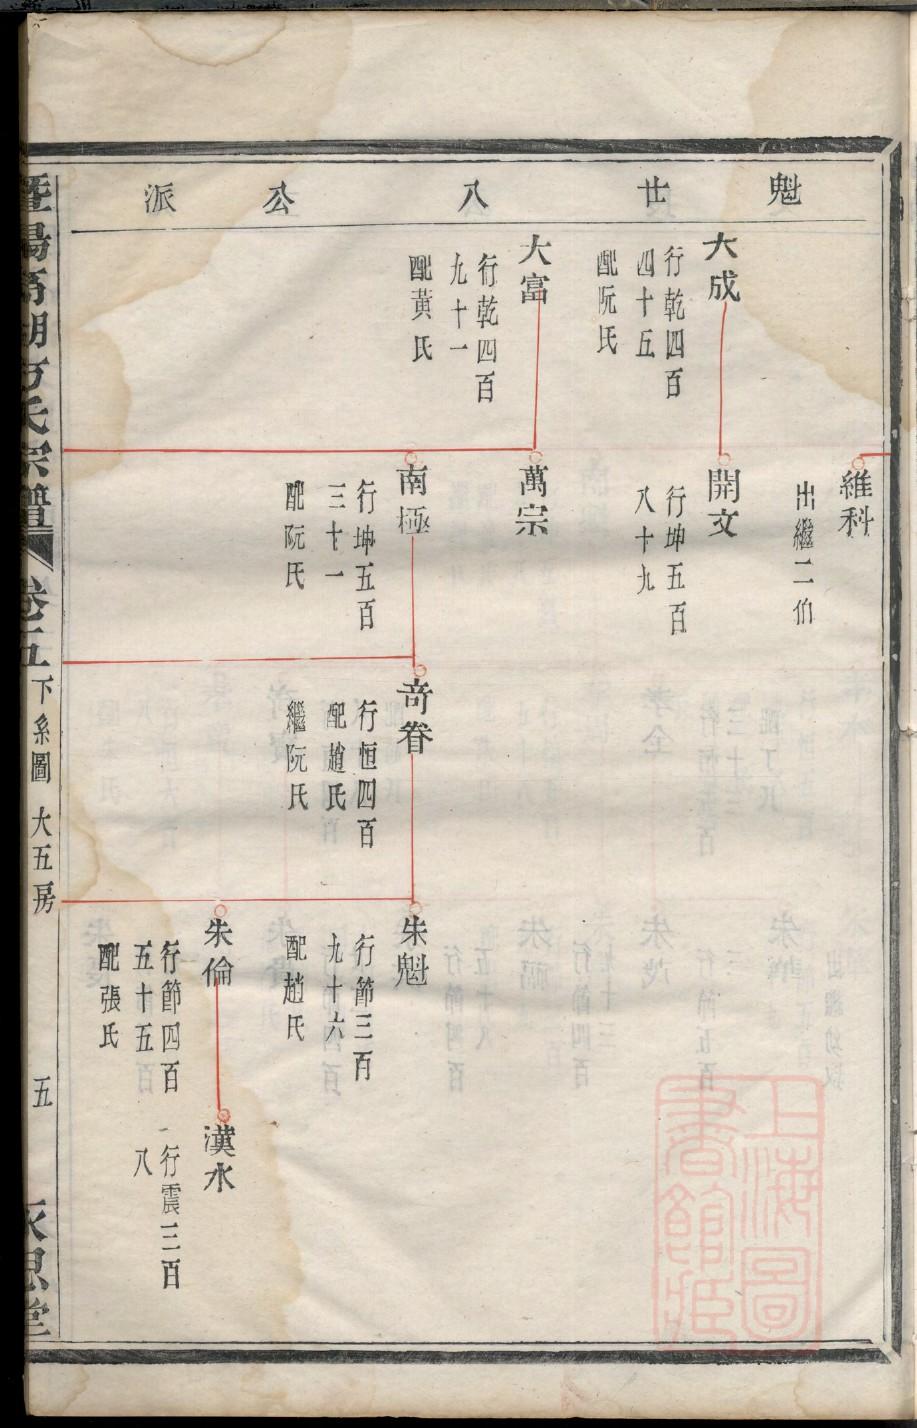 魁廿八公派
大成
行乾四百
四十五
配阮氏
大富
行乾四百
九十一
配黃氏
維科
出繼二伯
開文
行坤五百
八十九
萬宗
南極
行坤五百
三十一
配阮氏
奇眷
行恒四百
配趙氏
繼阮氏
朱魁
行節三百
九十六
配趙氏
朱倫
行節四百
五十五
配張氏
漢水
行震三百
八
氏宗譜
卷五
下系圖 大五房
五
思堂
上海圖
書館藏